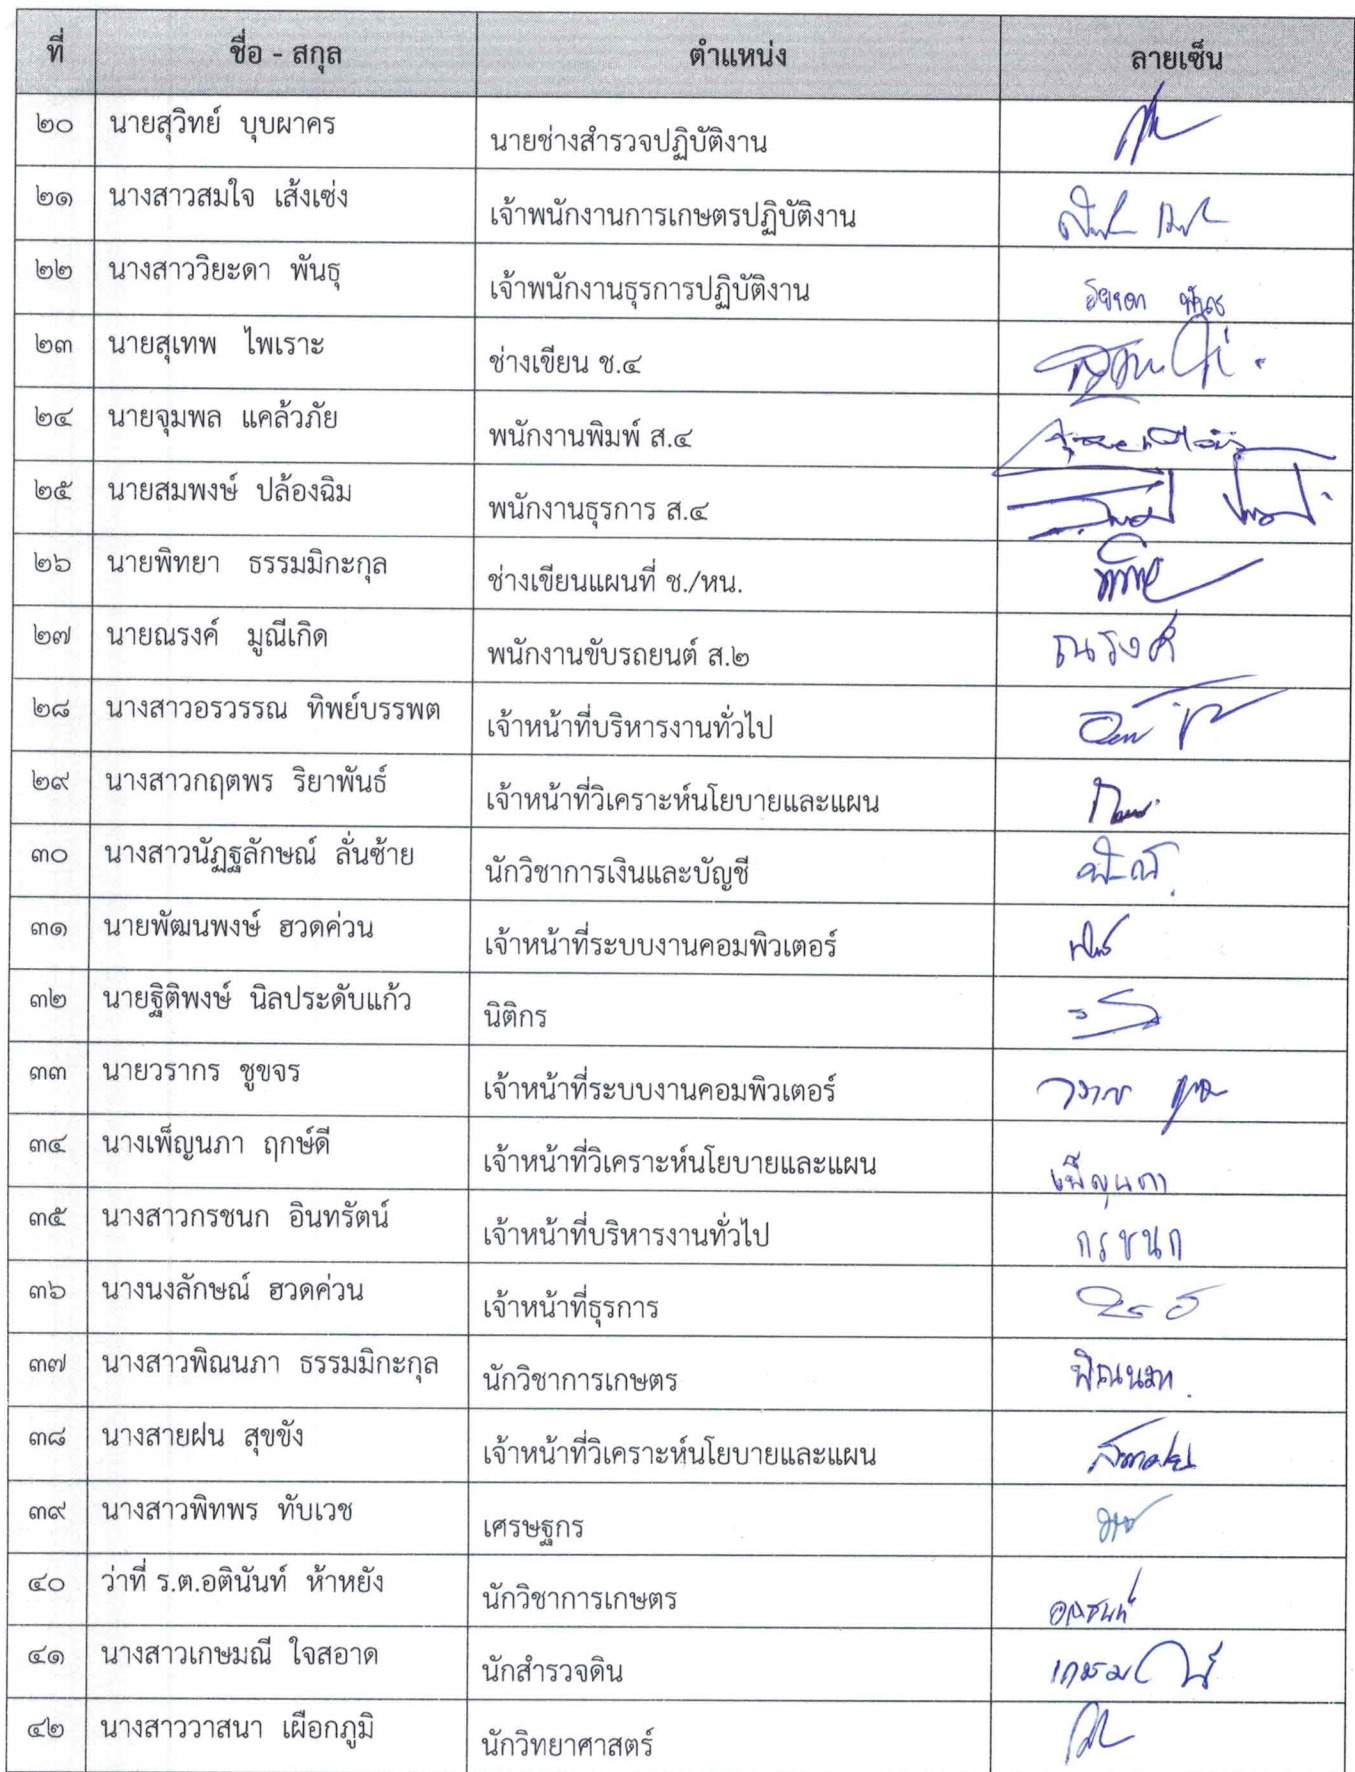 ที่ ชื่อ - สกุล ตำแหน่ง ลายเซ็น
๒๐ นายสุวิทย์ บุบผาคร นายช่างสำรวจปฏิบัติงาน
๒๑ นางสาวสมใจ เส้งเซ่ง เจ้าพนักงานการเกษตรปฏิบัติงาน
๒๒ นางสาววิยะดา พันธุ เจ้าพนักงานธุรการปฏิบัติงาน
๒๓ นายสุเทพ ไพเราะ ช่างเขียน ช.๔
๒๔ นายจุมพล แคล้วภัย พนักงานพิมพ์ ส.๔
๒๕ นายสมพงษ์ ปล้องฉิม พนักงานธุรการ ส.๔
๒๖ นายพิทยา ธรรมมิกะกุล ช่างเขียนแผนที่ ช./หน.
๒๗ นายณรงค์ มูณีเกิด พนักงานขับรถยนต์ ส.๒ ณรงค์
๒๘ นางสาวอรวรรณ ทิพย์บรรพต เจ้าหน้าที่บริหารงานทั่วไป
๒๙ นางสาวกฤตพร ริยาพันธ์ เจ้าหน้าที่วิเคราะห์นโยบายและแผน
๓๐ นางสาวนัฏฐลักษณ์ ลั่นซ้าย นักวิชาการเงินและบัญชี
๓๑ นายพัฒนพงษ์ ฮวดค่วน เจ้าหน้าที่ระบบงานคอมพิวเตอร์
๓๒ นายฐิติพงษ์ นิลประดับแก้ว นิติกร
๓๓ นายวรากร ชูขจร เจ้าหน้าที่ระบบงานคอมพิวเตอร์
๓๔ นางเพ็ญนภา ฤกษ์ดี เจ้าหน้าที่วิเคราะห์นโยบายและแผน เพ็ญนภา
๓๕ นางสาวกรชนก อินทรัตน์ เจ้าหน้าที่บริหารงานทั่วไป กรชนก
๓๖ นางนงลักษณ์ ฮวดค่วน เจ้าหน้าที่ธุรการ
๓๗ นางสาวพิณนภา ธรรมมิกะกุล นักวิชาการเกษตร พิณนภา
๓๘ นางสายฝน สุขขัง เจ้าหน้าที่วิเคราะห์นโยบายและแผน
๓๙ นางสาวพิทพร ทับเวช เศรษฐกร
๔๐ ว่าที่ ร.ต.อตินันท์ ห้าหยัง นักวิชาการเกษตร
๔๑ นางสาวเกษมณี ใจสอาด นักสำรวจดิน
๔๒ นางสาววาสนา เผือกภูมิ นักวิทยาศาสตร์